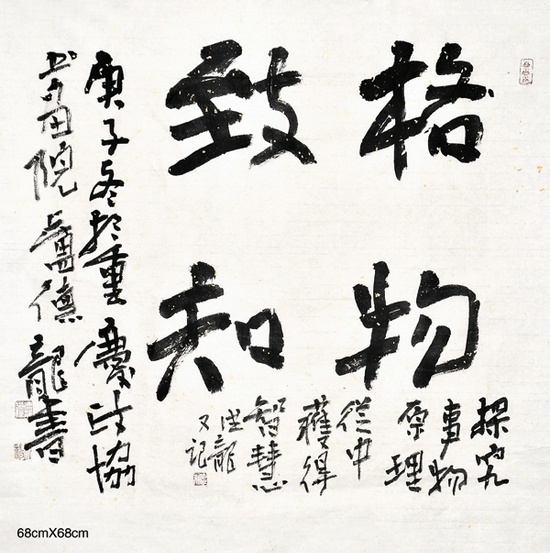 格物
致知
探究
事物
原理
從中
獲得
智慧
德龍
又記
庚子冬於重慶政協
书畫院盧德龍書
68cmX68cm